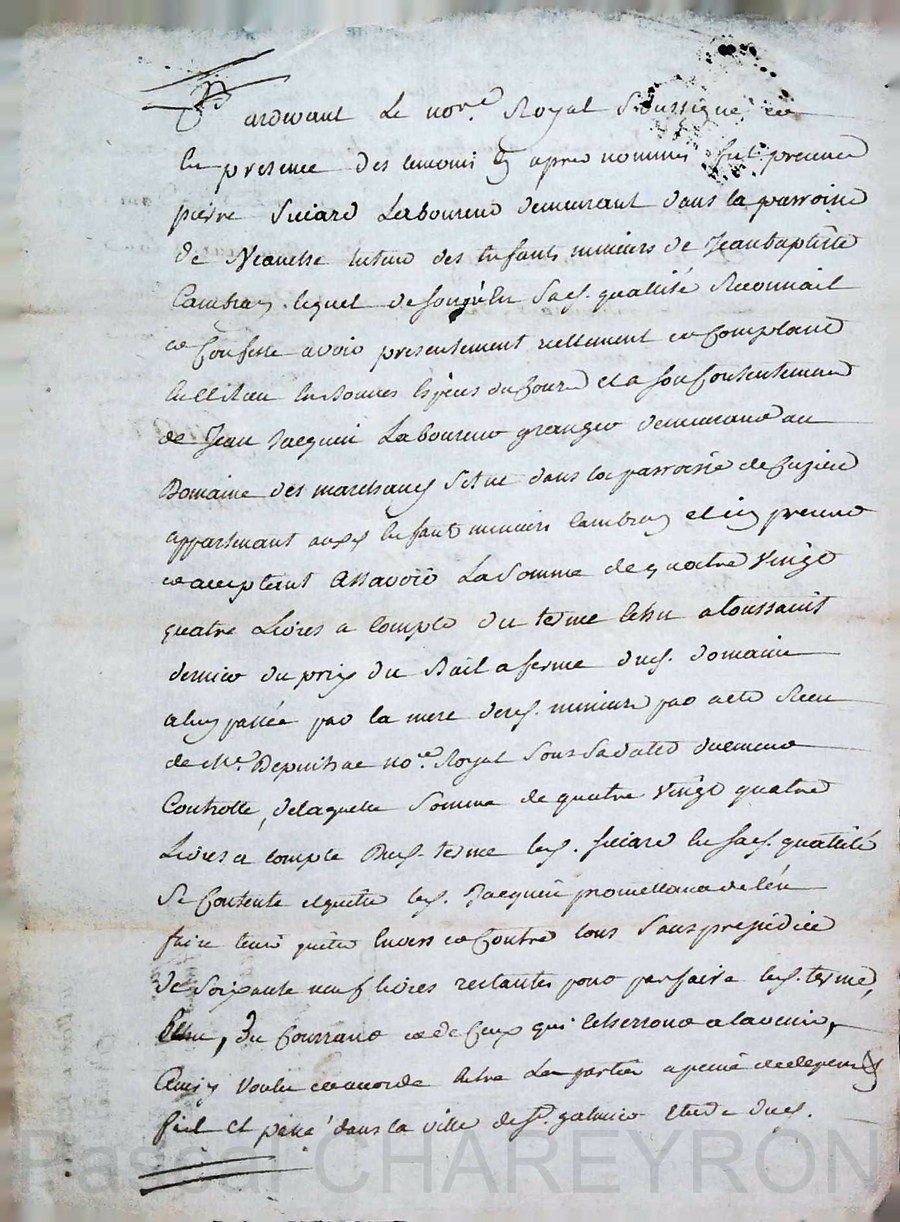 Pardevant Le no.re Royal Soussigné et
En presence des temoins cy apres nommés fut present
pierre Siciard Laboureur demeurant dans la parroisse
de tuteur des Enfants mineurs de Jean baptiste
Cambray lequel de son gré En sad. qualitté Reconnait
et Confesse avoir presentement reellement et Comptant
En Bonnes Especes du Cours et a son Consentement
de Jean Jacquin Laboureur granger demeurant au
Domaine des marchands Situé dans la parroisse de Cuzieu
appartenant auxd Enfants mineurs Cambray et icy present
et acceptant Assavoir La Somme de quatre Vingt
quatre Livres a Compte du terme Echu a toussaint
dernier du prix du Bail a ferme dud. domaine
a luy passée par la mere desd. mineurs par acte Receu
de Me. no.re Royal Sous Sa datte duement
Controllé, de laquelle Somme de quatre Vingt quatre
Livres a Compte Dud. terme led. Siciard En sad. qualitté
Se Contente et quitte led. Jacquin promettant de l'en
faire tenir quitte Envers et Contre tous Sans prejudice
de Soixante neuf livres restantes pour parfaire led. terme,
Echu, du Courrant et de Ceux qui Echerront a lavenir,
Ainsy Voulu et accordé Entre Les parties a peine de depens
fait et passé dans la ville de St. galmier Etude dud.
Pascal CHAREYRON